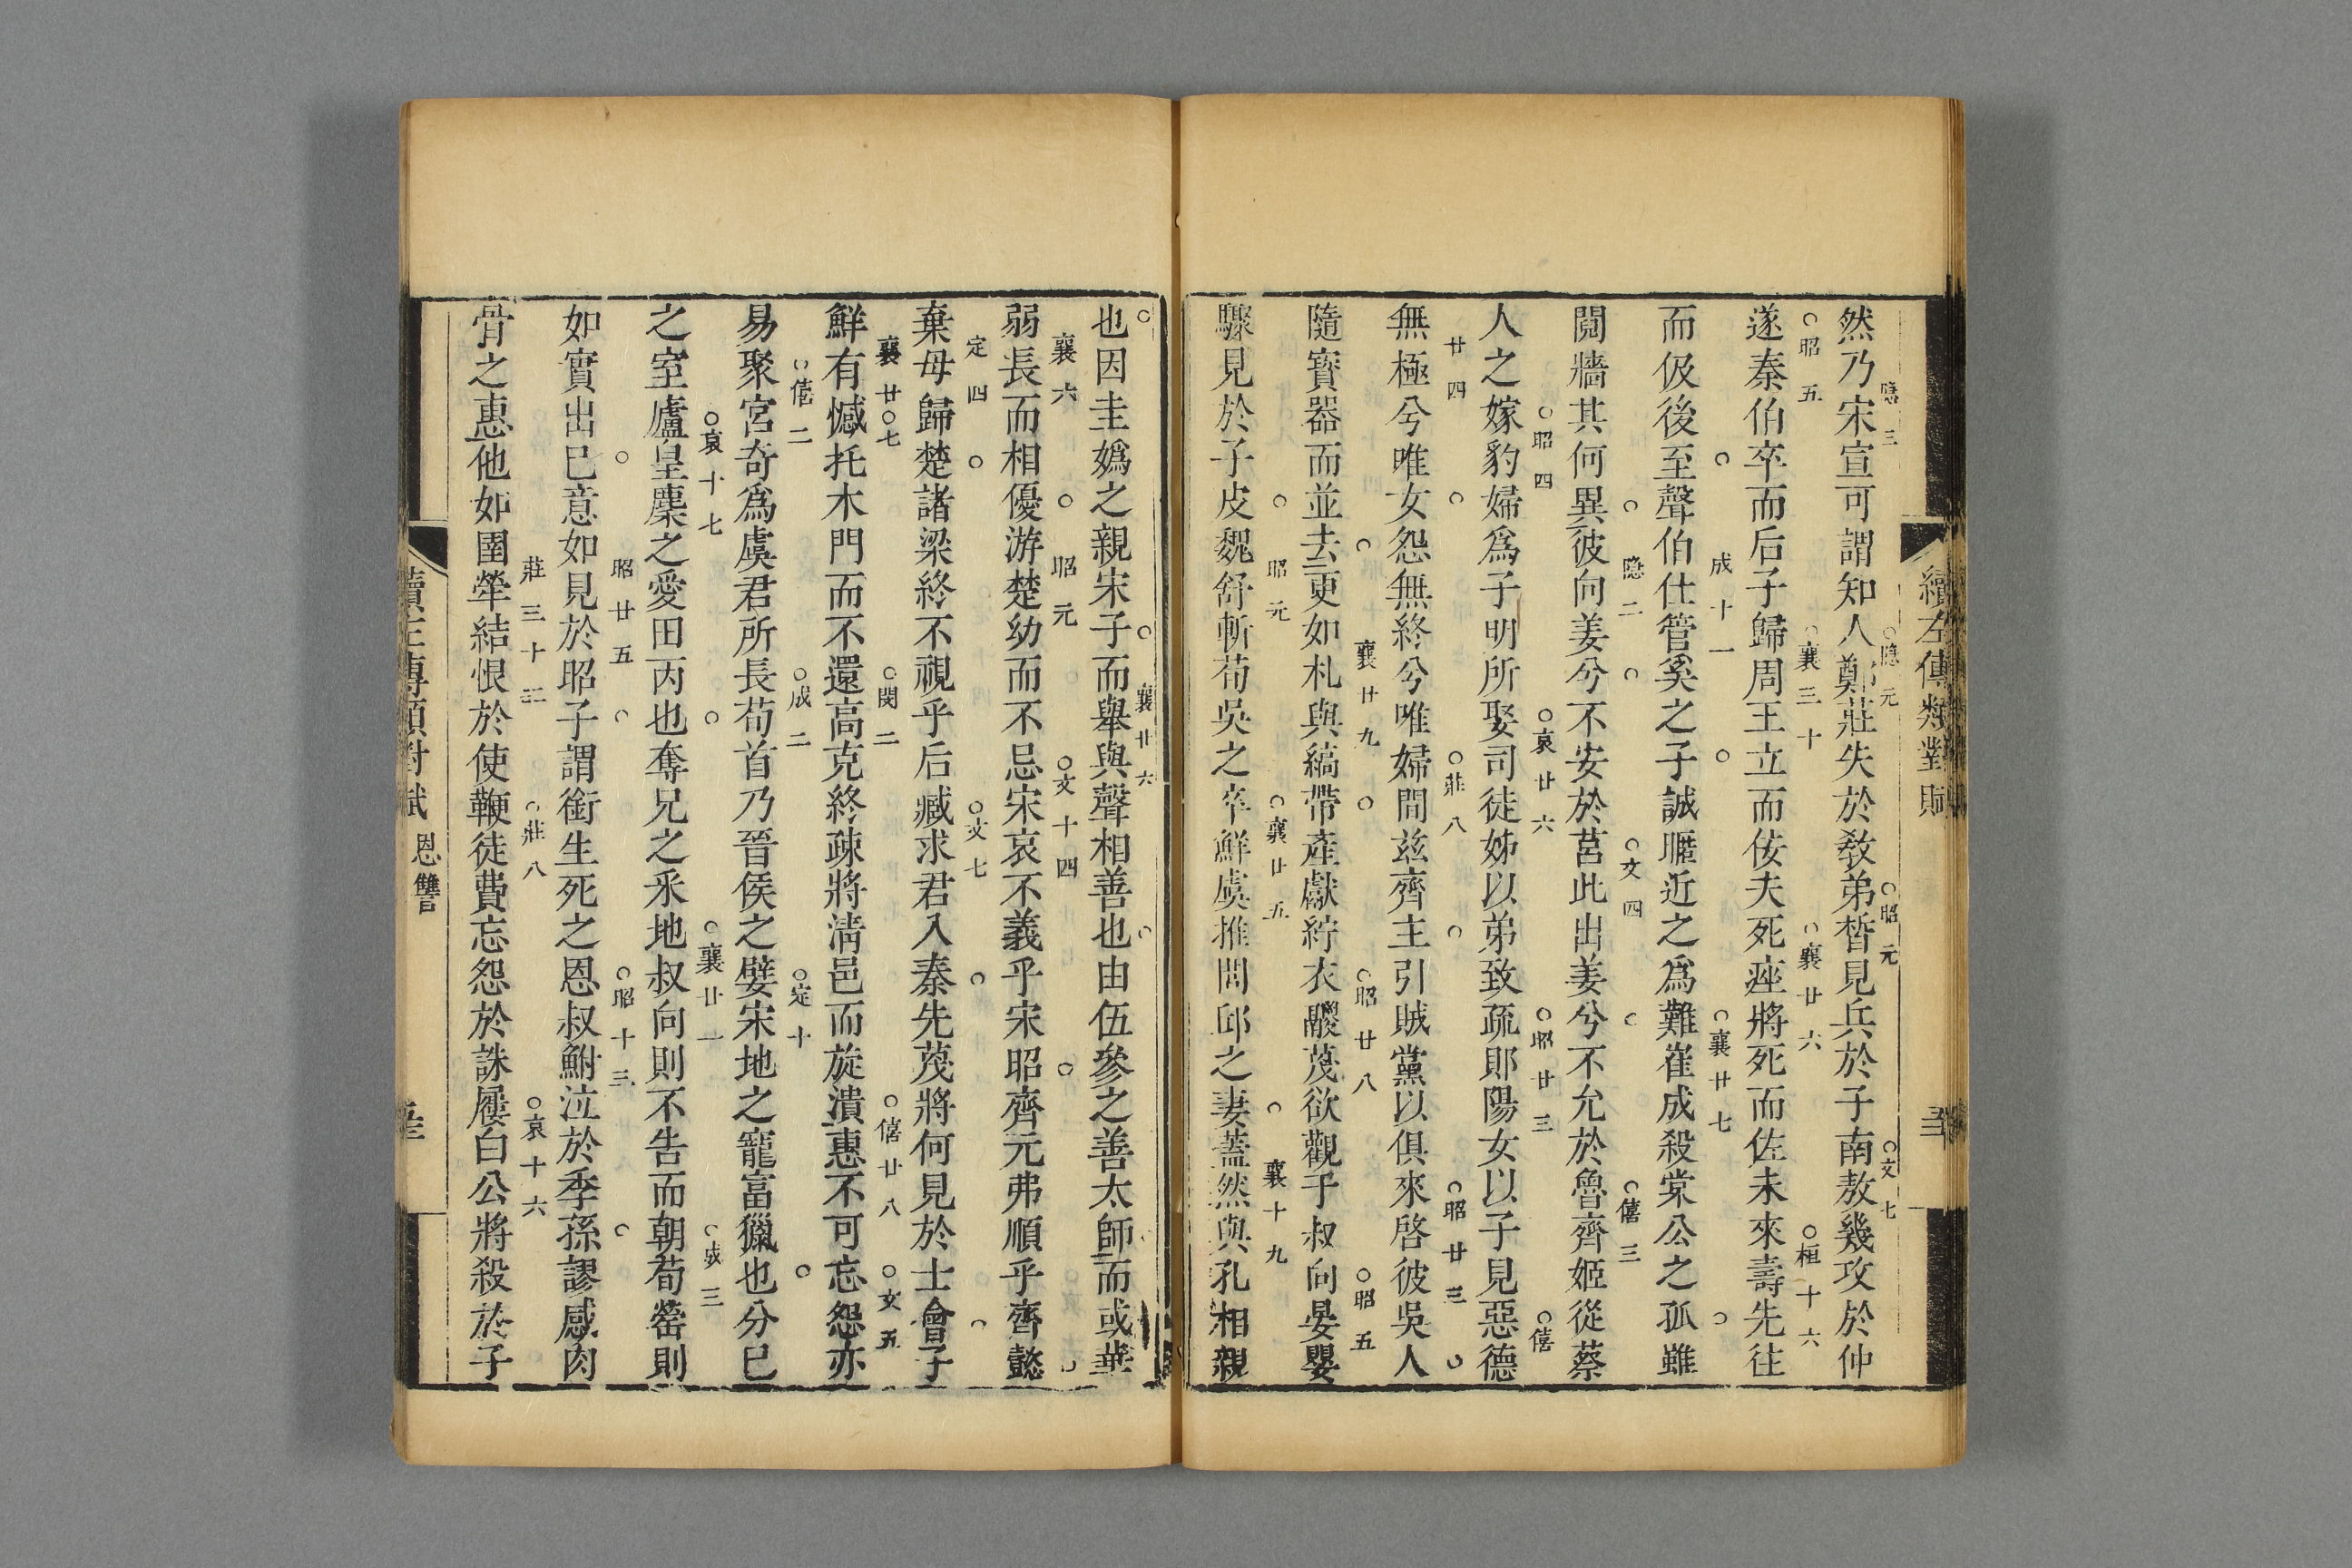 續左傳類對賦
然乃宋宣可謂知人鄭莊失於敎弟晳見兵於子南敖幾攻於仲
隱三 隱元 昭元 文七
遂秦伯卒而后子歸周王立而佞夫死痤將死而佐未來壽先往
昭五 襄三十 襄廿六 桓十六
而伋後至聲伯仕管奚之子誠暱近之爲難崔成殺棠公之孤雖
成十一 襄廿七
鬩牆其何異彼向姜兮不安於莒此出姜兮不允於魯齊姬從蔡
隱二 文四 僖三
人之嫁豹婦爲子明所娶司徒姊以弟致疏郹陽女以子見惡德
昭四 哀廿六 昭廿三 僖
無極兮唯女怨無終兮唯婦間兹齊主引賊黨以俱來啓彼吳人
廿四 莊八 昭廿三
隨寶器而並去更如札與縞帶產獻紵衣鬷蔑欲觀于叔向晏嬰
襄廿九 昭廿八 昭五
驟見於子皮魏舒斬荀吳之卒鮮虞推閭邱之妻蓋然與孔相親
昭元 襄廿五 襄十九
也因圭嬀之親宋子而舉與聲相善也由伍參之善太師而或華
襄廿六
弱長而相優游楚幼而不忌宋哀不義乎宋昭齊元弗順乎齊懿
襄六 昭元 文十四
棄母歸楚諸梁終不視乎后臧求君入秦先蔑將何見於士會子
定四 文七
鮮有憾托木門而不還高克終疎將淸邑而旋潰惠不可忘怨亦
襄廿七 閔二 僖廿八 文五
易聚宮奇爲虞君所長荀首乃晉侯之嬖宋地之寵富獵也分巳
僖二 成二 定十
之室廬皇麇之愛田丙也奪兄之釆地叔向則不告而朝荀罃則
哀十七 襄廿一 成三
如實出巳意如見於昭子謂銜生死之恩叔鮒泣於季孫謬感肉
昭廿五 昭十三
骨之惠他如圉犖結恨於使鞭徒費忘怨於誅屨白公將殺於子
莊三十二 莊八 哀十六
續左傳類對賦 恩讐